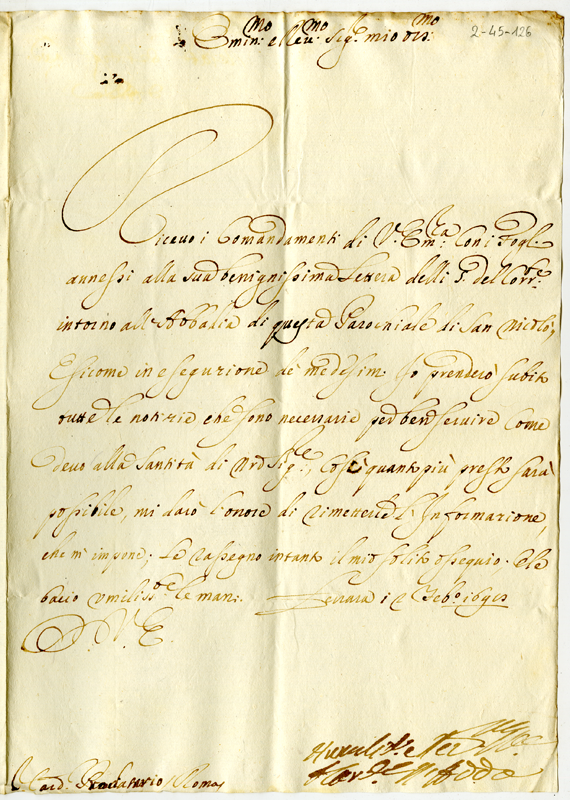 2-45-126
Emin.mo e Rev.mo Sig.r mio oss.mo
Ricevo i Comandamenti di V. Em.za Con i Fogl.
annessi alla sua benignissima Lettera delli 5. del Corr.te
intorno all'Abbatia di questa Parochiale di San Nicolò,
E sicome in esseguzione de' medesim. Io prenderò subito
tutte le notizie che sono necessarie per ben servire Come
devo alla Santità di Nro Sig.re, Così quanto più presto sarà
possibile, mi darò l'onore di rimettere l'Informazione,
che m'impone; Le rassegno intanto il mio solito ossequio. E le
bacio umiliss.te le man:. Ferrara i Feb.o 1692
D. V. E.
Humiliss.o e
Card. D'Adda
Card. Prodatario Roma